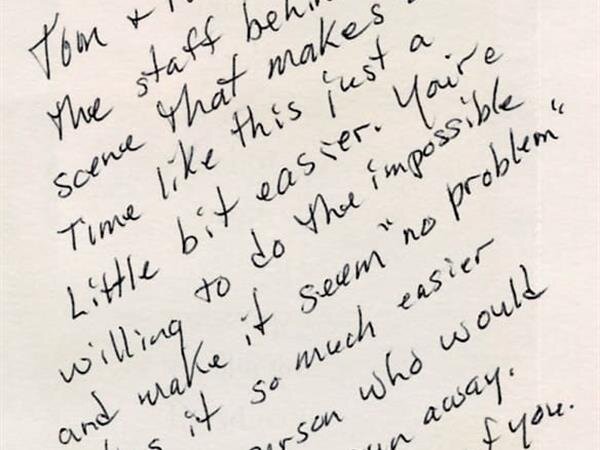 Tom +
the staff behin
scene that makes
Time like this just a
Little bit easier. You're
willing to do the impossible
and make it seem "no problem"
it so much easier
person who would
away.
of you.